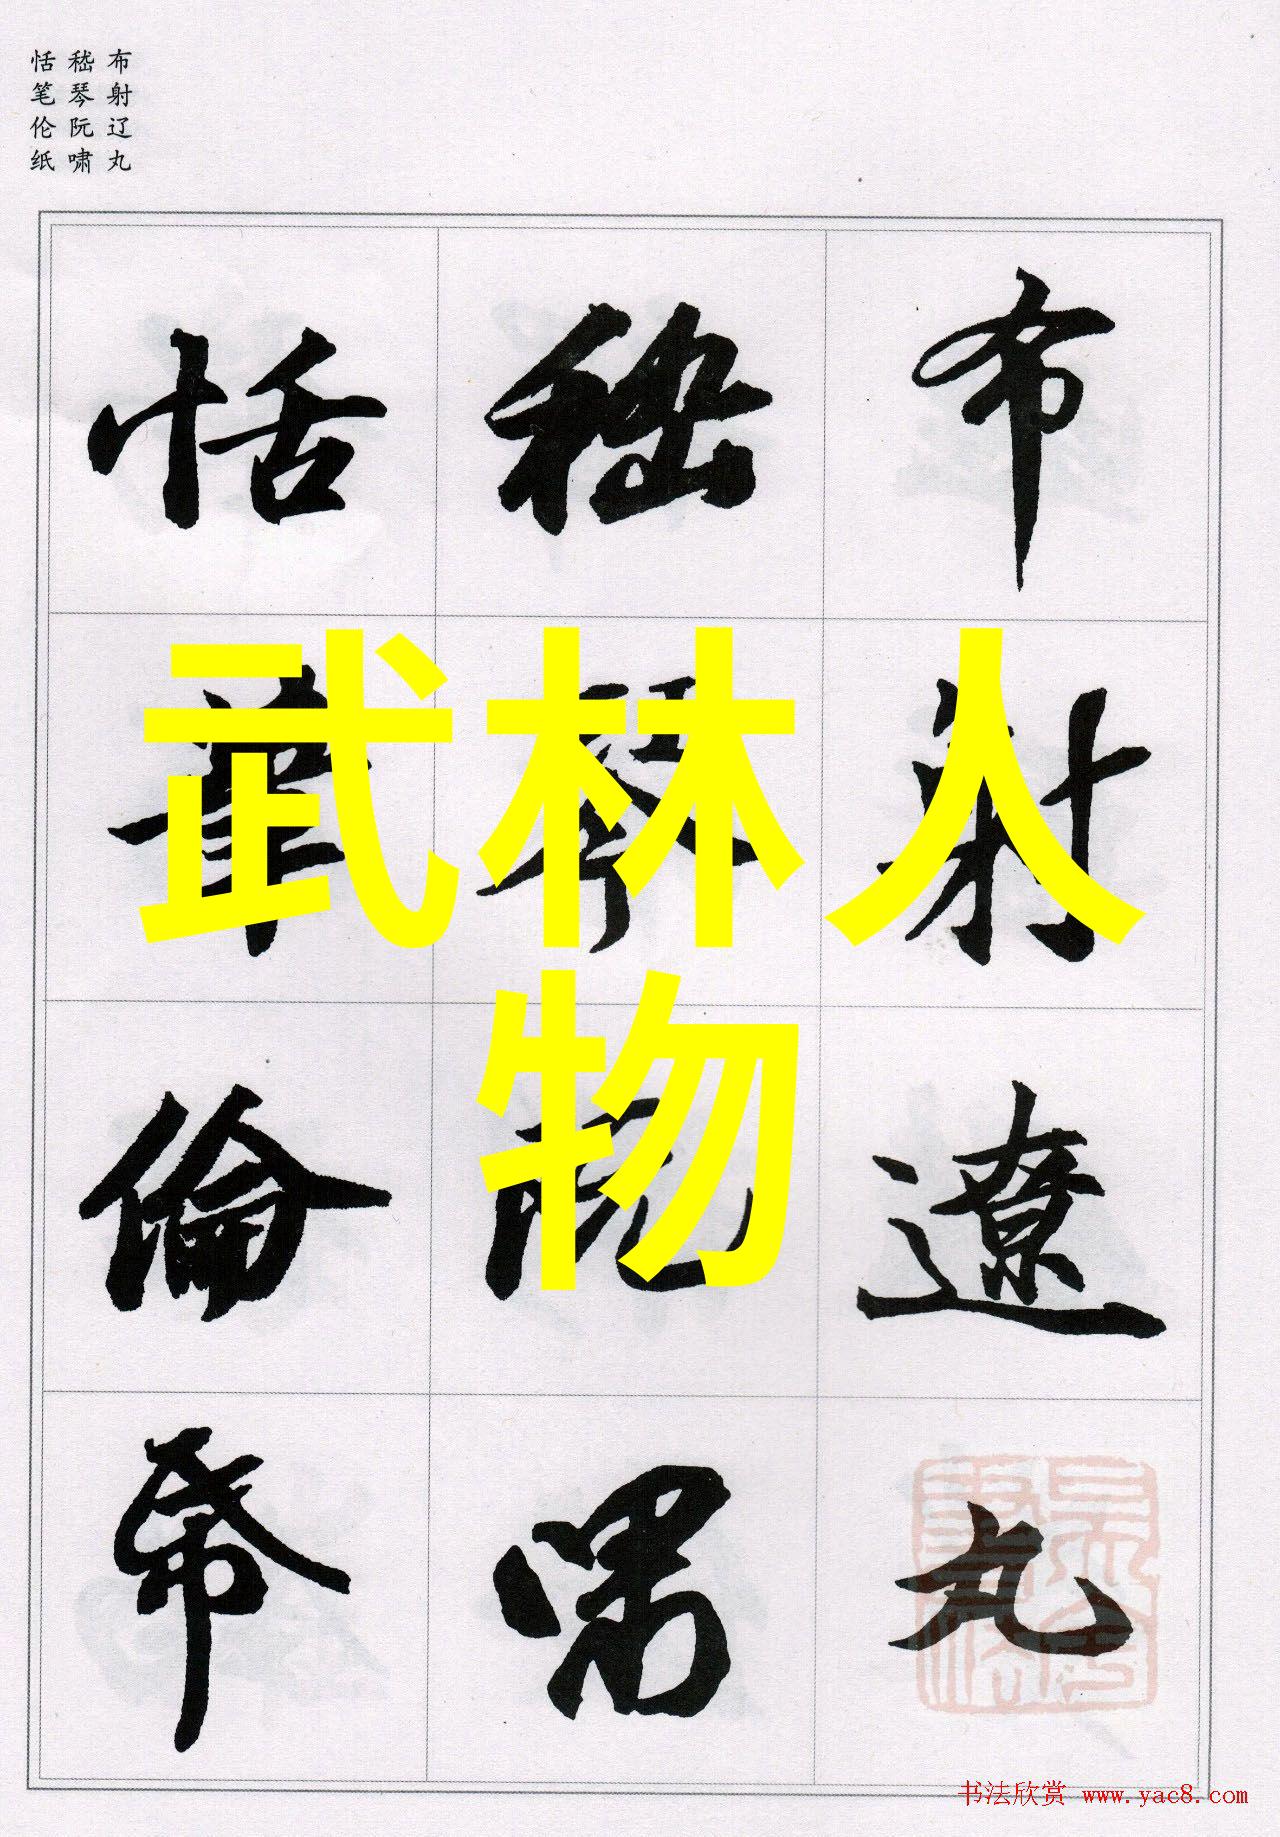 布射辽丸
嵇琴阮啸
恬笔伦纸
布射遼丸
嵇琴阮嘯
恬筆倫帋
武林人
物
书法欣赏 www.yac8.com